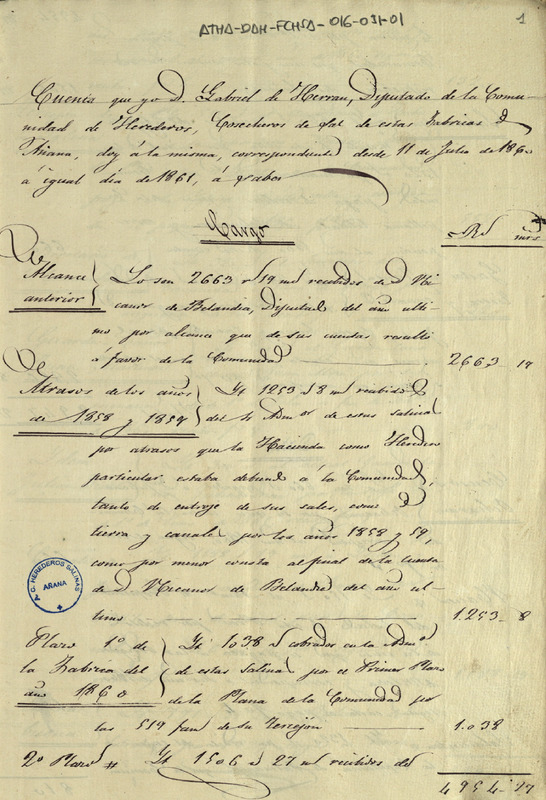 ATHA-DAH-FCHSA-016-031-01
1
Cuenta que yo D. Gabriel de Herran, Diputado de la Comu-
nidad de Herederos, Cosecheros de Sal de estas Fabricas de
Añana, doy á la misma, correspondiente desde 11 de Julio de 1860
á igual dia de 1861, á saber
Cargo
Rs mrs
De
Alcance anterior
Lo son 2663 rs 19 ms recibidos de D. Ni-
canor de Belandia, Diputado del año ulti-
mo por alcance que de sus cuentas resultó
á favor de la Comunidad 2663 19
De
Atrasos de los años de 1858 y 1859
Yt 1253 rs 8 ms recibidos
del Sr Admor de estas salinas
por atrasos que la Hacienda como Heredero
particular estaba debiendo á la Comunidad,
tanto de entroje de sus sales, como de
tierra y canales por los años 1858 y 59,
como por menor consta al final de la cuenta
de D. Nicanor de Belandia del año ul-
timo 1253 8
A. C. HEREDEROS SALINAS
AÑANA
Plazo 1º de la Fabrica del año 1860
Yt 1038 rs cobrados en la Admon
de estas Salinas por el Primer Plazo
de la Plana de la Comunidad por
las 519 fans de su Terrejon 1038
2º Plazo Yt 1506 rs 27 ms recibidos del
4954-27